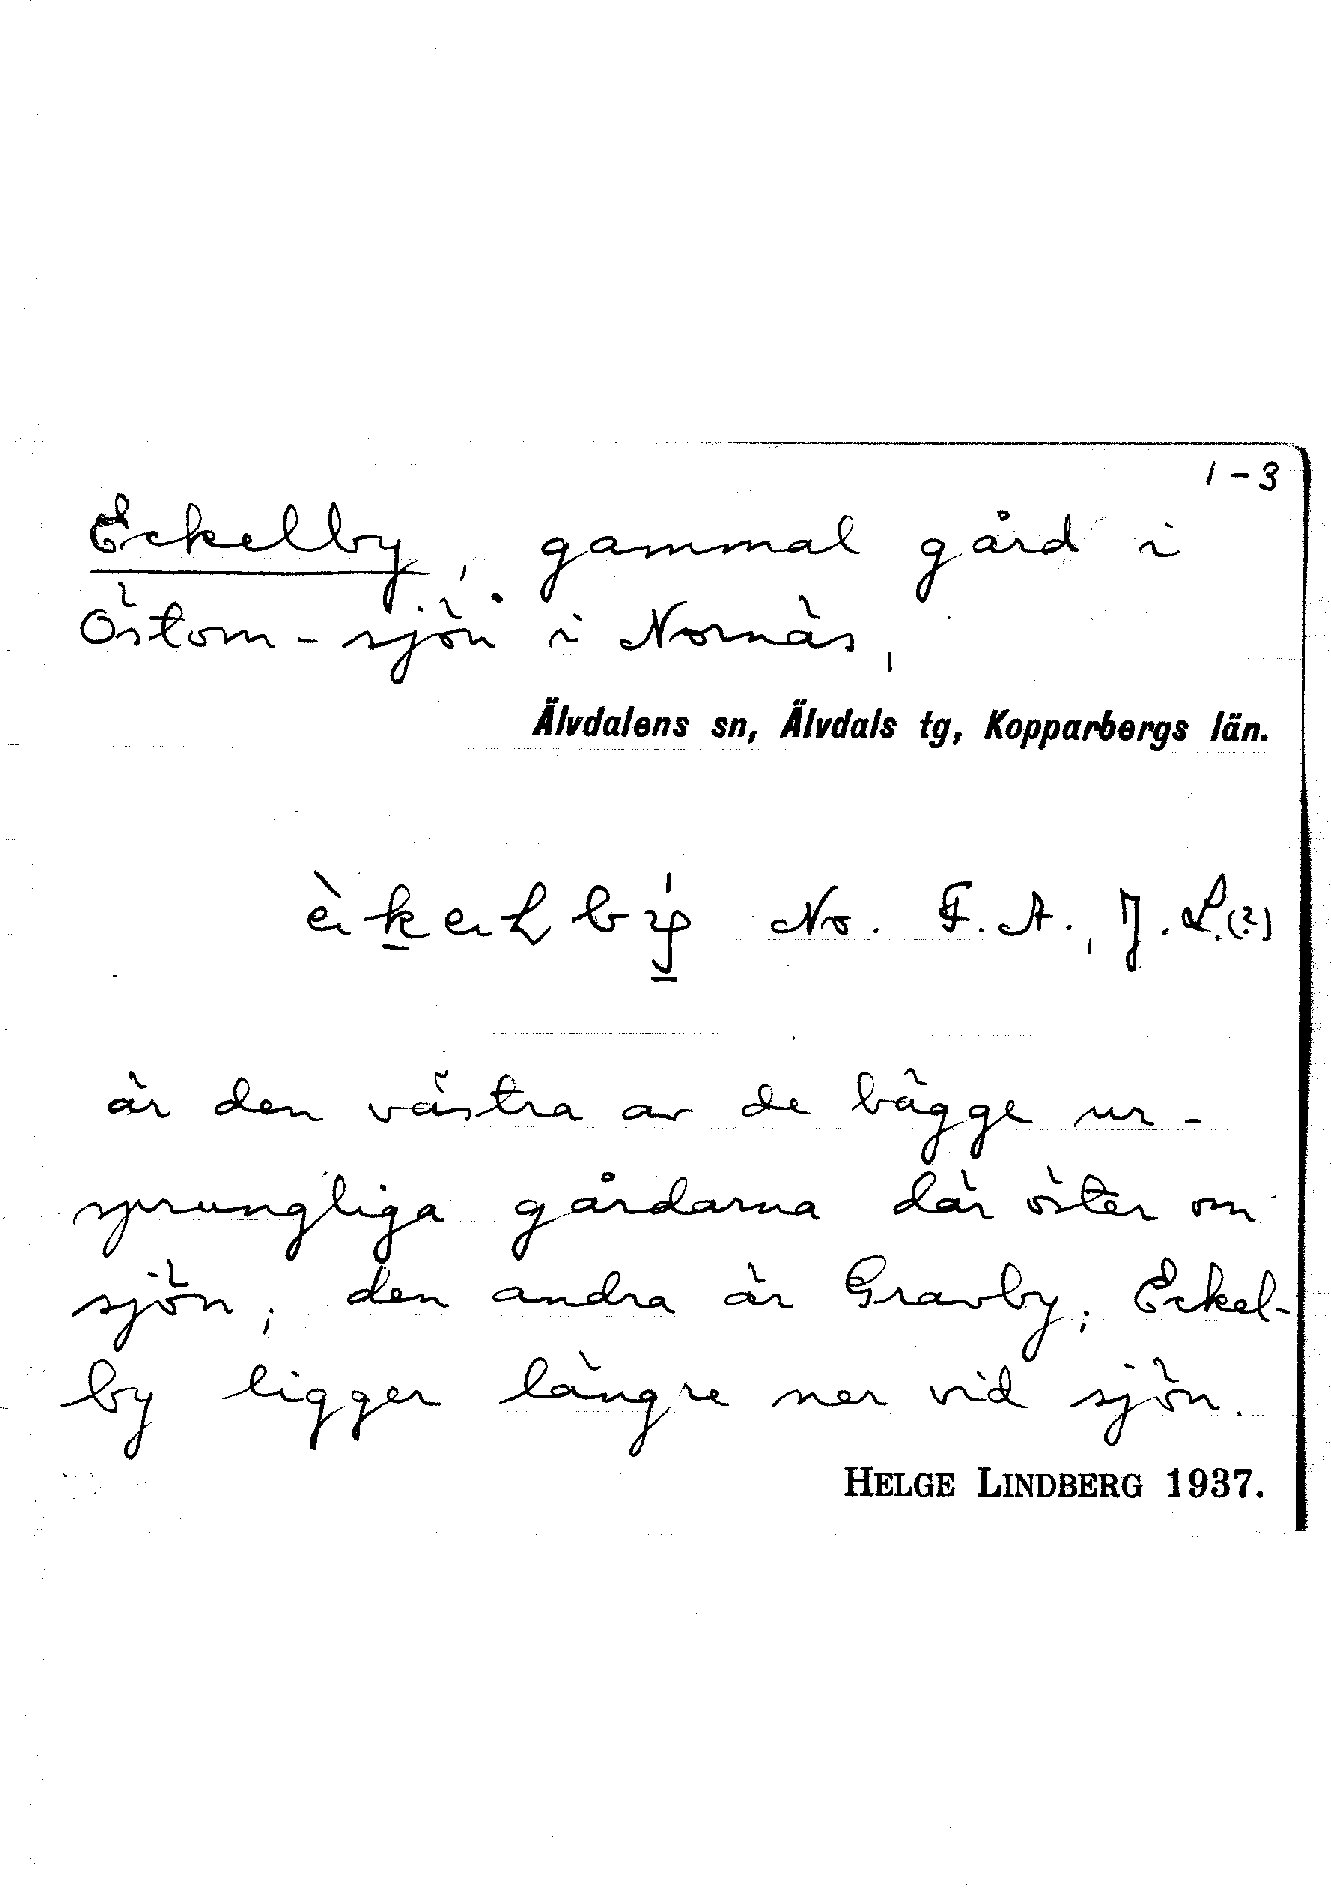 1-3
Eckelby, gammal gård i
Östom-sjön i Nornäs,
Älvdalens sn, Älvdals tg, Kopparbergs län.
No. F.A., J.L.(?)
är den västra av de bägge ur-
sprungliga gårdarna där öster om
sjön; den andra är Gravby; Eckel-
by ligger längre ner vid sjön.
HELGE LINDBERG 1937.